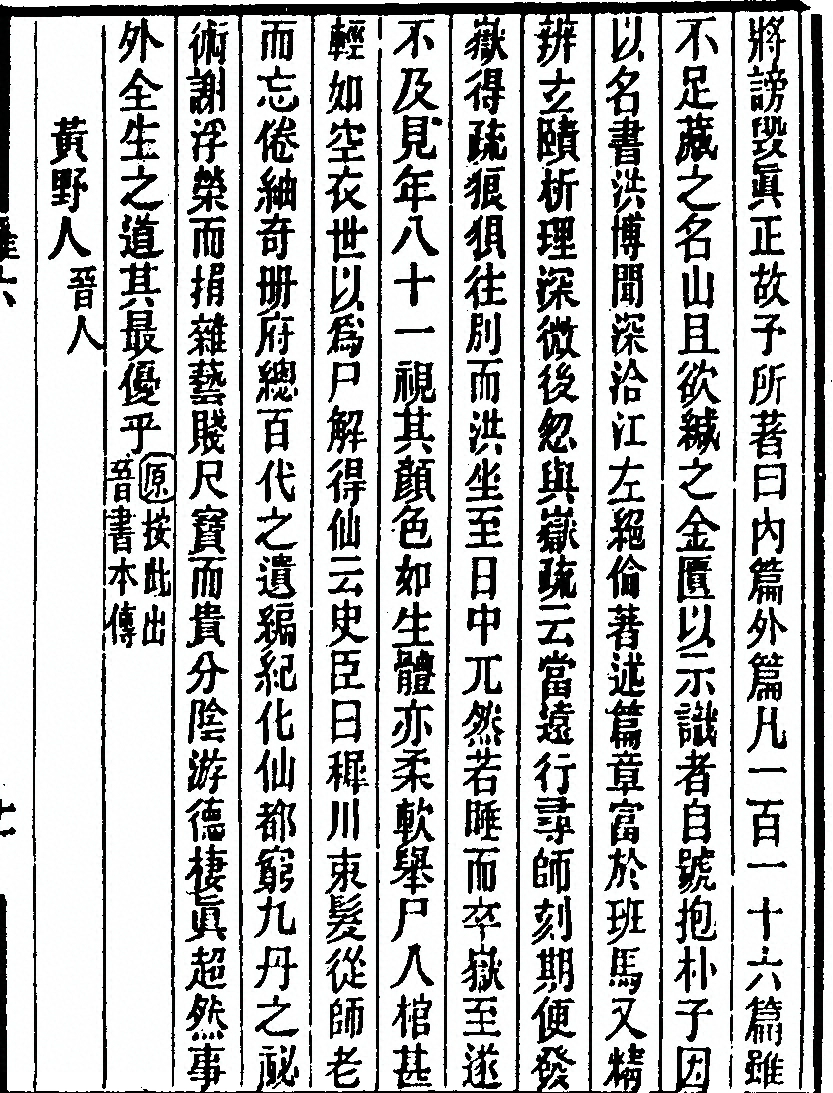 將謗毀眞正故子所著曰內篇外篇凡一百一十六篇雖
不足藏之名山且欲緘之金匱以示識者自號抱朴子因
以名書洪博聞深洽江左絕倫著述篇章富於班馬又精
辨玄賾析理深微後忽與嶽疏云當遠行尋師刻期便發
嶽得疏狼狽往別而洪坐至日中兀然若睡而卒嶽至遂
不及見年八十一視其顏色如生體亦柔軟舉尸入棺甚
輕如空衣世以爲尸解得仙云史臣曰稚川束髮從師老
而忘倦紬奇册府總百代之遺編紀化仙都窮九丹之祕
術謝浮榮而捐雜藝賤尺寶而貴分陰游德棲眞超然事
外全生之道其最優乎原按此出晉書本傳
黃野人晉人